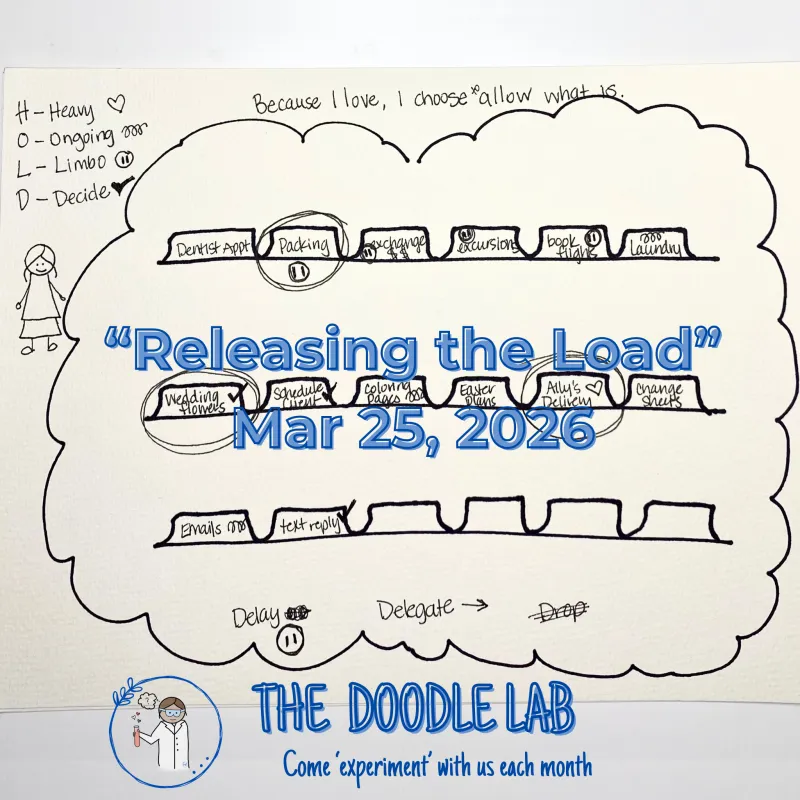 Because I love, I choose to allow what is.
H - Heavy
O - Ongoing
L - Limbo
D - Decide
Dentist Appt
Packing
exchange $$
excursions
book flights
Laundry
“Releasing the Load”
Wedding flowers
Schedule client
coloring pages
Easter plans
Ally's Delivery
Change sheets
Mar 25, 2026
Emails
text reply
Delay
Delegate →
Drop
THE DOODLE LAB
Come ‘experiment’ with us each month